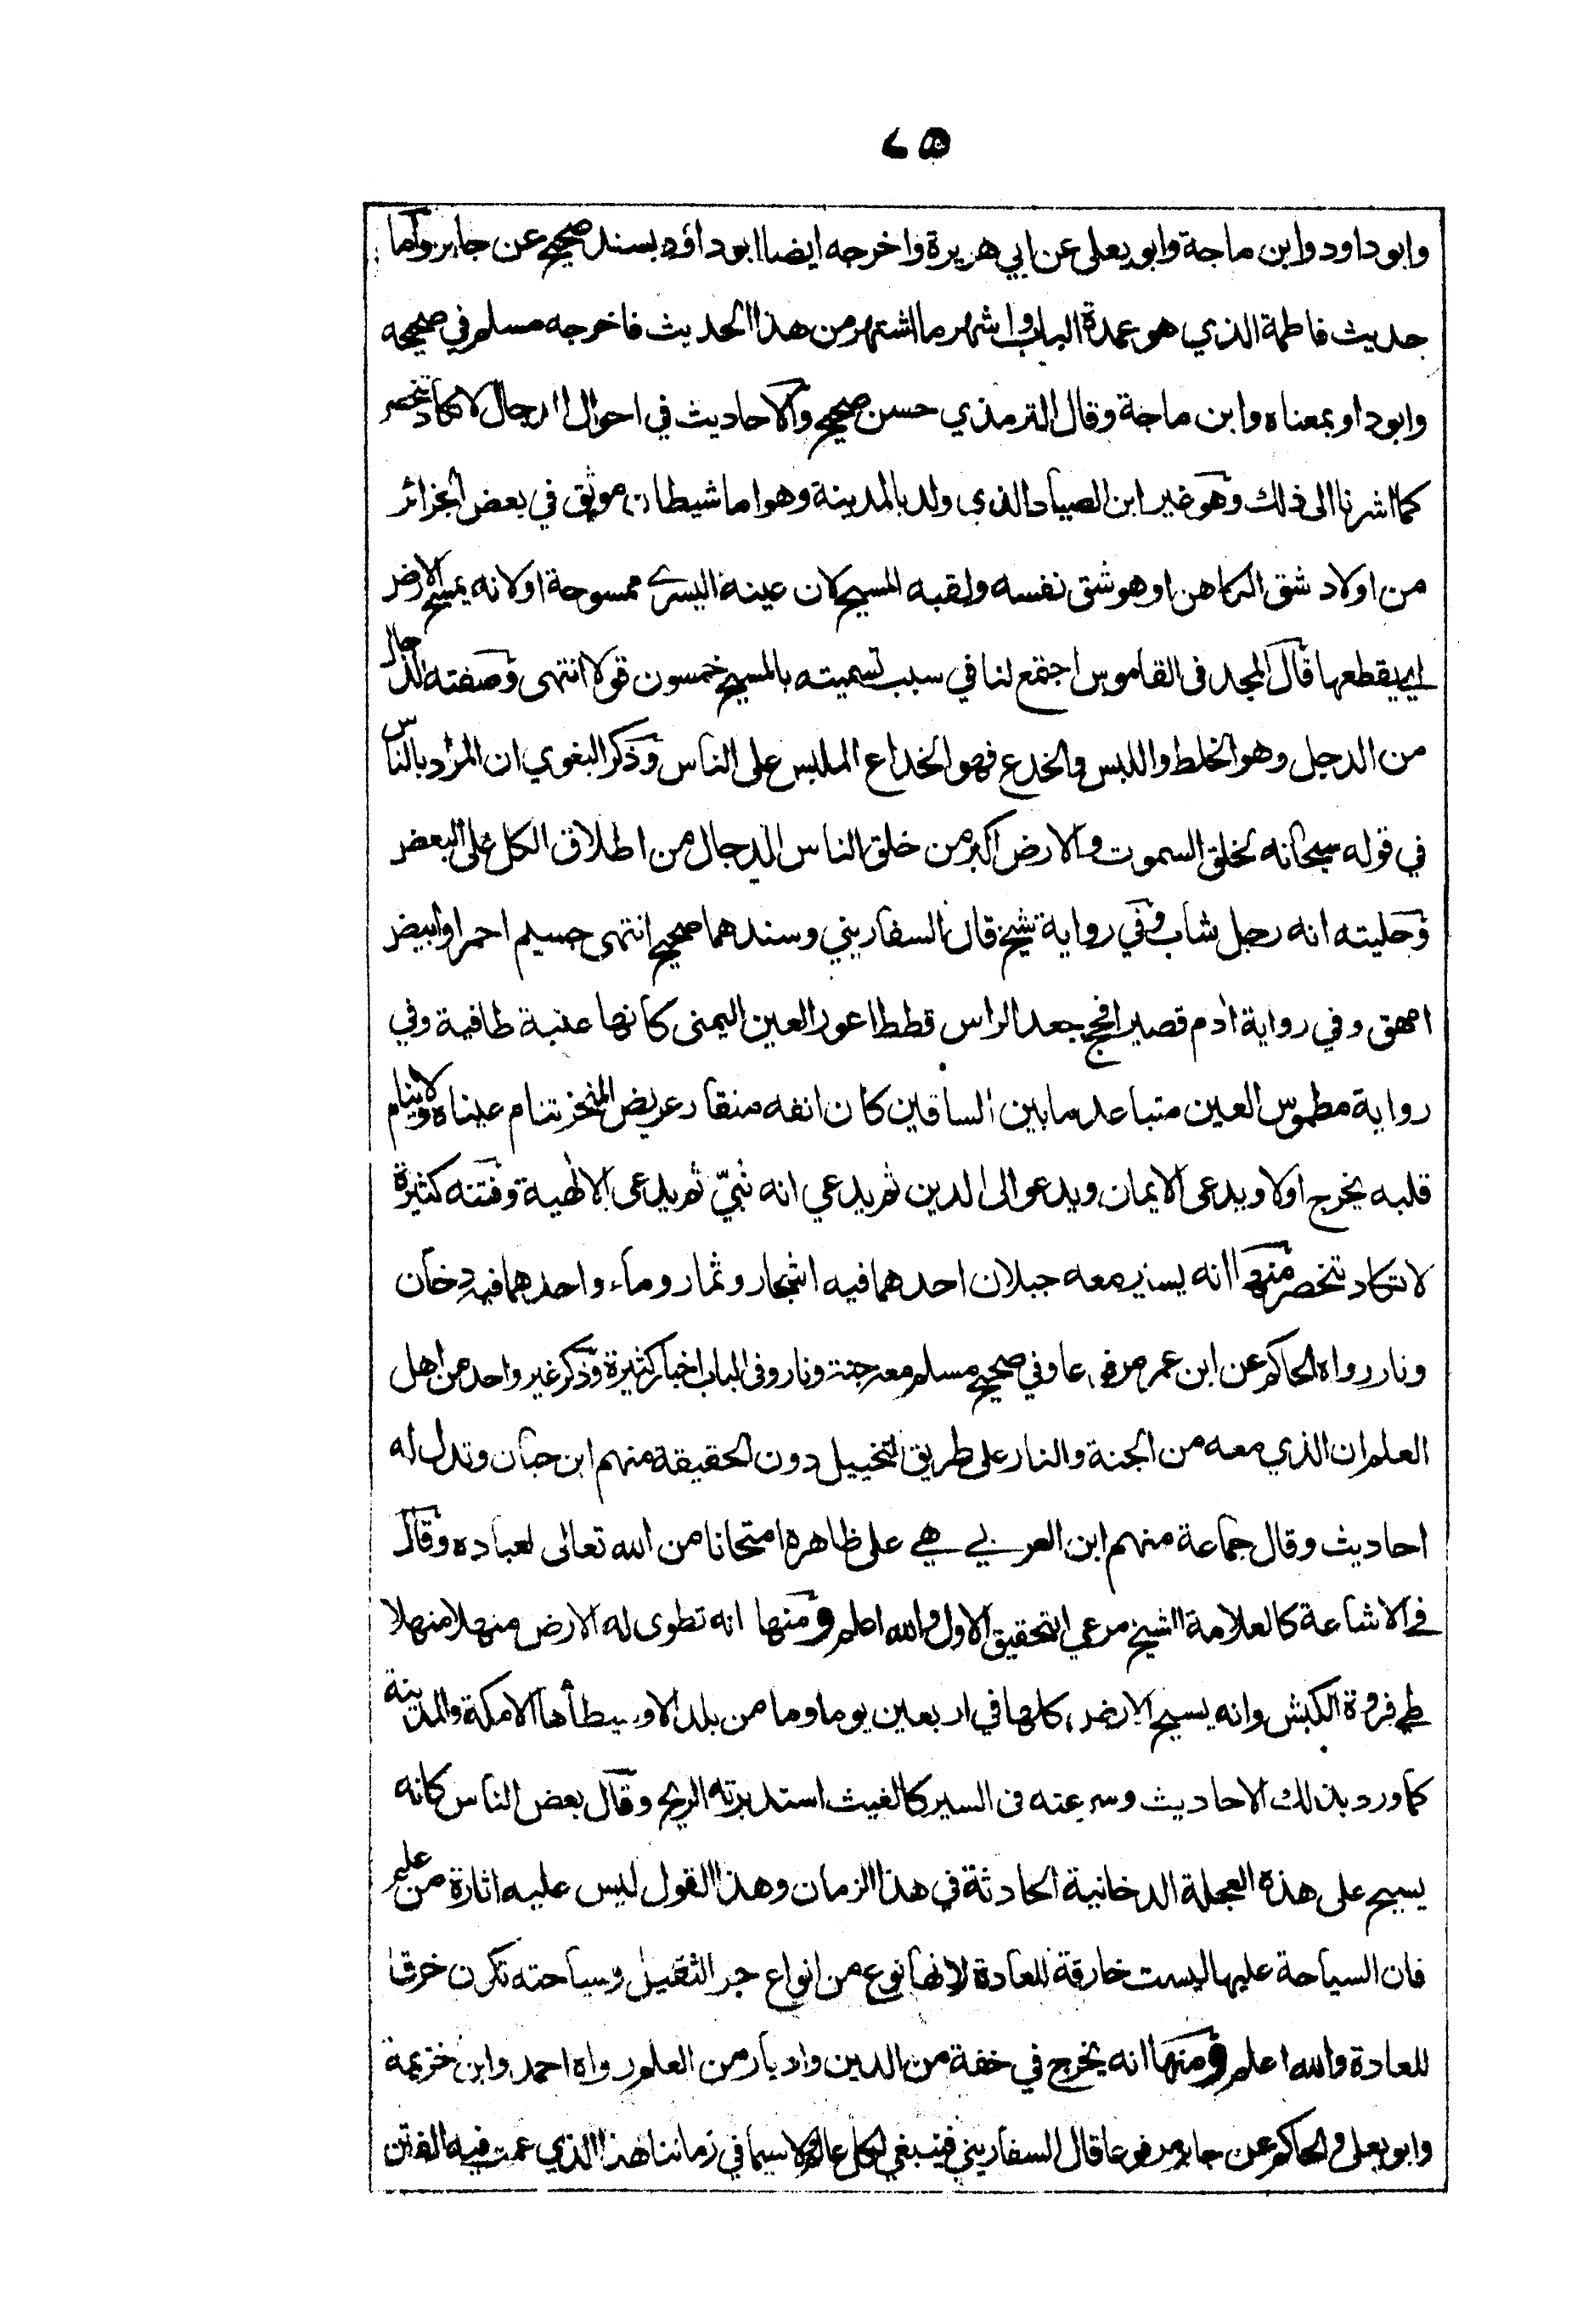 ٧٥
وابوداود وابن ماجة وابو يعلى عن ابي هريرة واخرجه ايضا ابو داؤد بسند صحيح عن جابر واما
حديث فاطمة الذي هو عمدة الباب واشهر ما اشتهر من هذا الحديث فاخرجه مسلم في صحيحه
وابوداو بمعناه وابن ماجة وقال الترمذي حسن صحيح والاحاديث في احوال الرجال لا تكاد تنحصر
كما اشرنا الى ذلك وهو غير ابن الصياد الذي ولد بالمدينة وهو اما شيطان موثق في بعض الجزائر
من اولاد شق الكاهن او هو شق نفسه ولقبه المسيح لان عينه اليسرى ممسوحة او لانه يمسح الارض
اي يقطعها قال المجد في القاموس اجتمع لنا في سبب تسميته بالمسيح خمسون قولا انتهى وصفته الدجال
من الدجل وهو الخلط واللبس والخدع فهو الخداع الملبس على الناس وذكر البغوي ان المراد بالناس
في قوله سبحانه لخلق السموت والارض اكبر من خلق الناس الدجال من اطلاق الكل على البعض
وحليته انه رجل شاب وفي رواية شيخ قال السفاريني وسندهما صحيح انتهى جسيم احمر او ابيض
امهق وفي رواية ادم قصير افحج جعد الراس قطط اعور العين اليمنى كانها عنبة طافية وفي
رواية مطموس العين متباعد ما بين الساقين كان انفه منقار عريض المنخر تنام عيناه ولا ينام
قلبه يخرج اولا ويدعى الايمان ويدعو الى الدين ثم يدعي انه نبيّ ثم يدعى الالهية وفتنه كثيرة
لا تكاد تنحصر منها انه يسير معه جبلان احدهما فيه اشجار وثمار وماء واحدهما فيه دخان
ونار رواه الحاكم عن ابن عمر مرفوعا وفي صحيح مسلم معه جنة ونار وفى الباب اخبار كثيرة وذكر غير واحد من اهل
العلم ان الذي معه من الجنة والنار على طريق التخييل دون الحقيقة منهم ابن حبان وتدل له
احاديث وقال جماعة منهم ابن العربي هي على ظاهره امتحانا من الله تعالى لعباده وقال
في الاشاعة كالعلامة الشيخ مرعي التحقيق الاول والله اعلم ومنها انه تطوى له الارض منهلا منهلا
طي فروة الكبش وانه يسيح الارض كلها في اربعين يوما وما من بلد الا وسيطأها الا مكة والمدينة
كما ورد بذلك الاحاديث وسرعته فى السير كالغيث استدبرته الريح وقال بعض الناس كانه
يسيح على هذه العجلة الدخانية الحادثة في هذا الزمان وهذا القول ليس عليه اثارة من علم
فان السياحة عليها ليست خارقة للعادة لانها نوع من انواع جر الثقيل وسياحته تكون خرقا
للعادة والله اعلم ومنها انه يخرج في خفة من الدين وادبار من العلم رواه احمد وابن خزيمة
وابو يعلى والحاكم عن جابر مرفوعا قال السفاريني فينبغي لكل عالم ولا سيما في زماننا هذا الذي عمت فيه الفتن